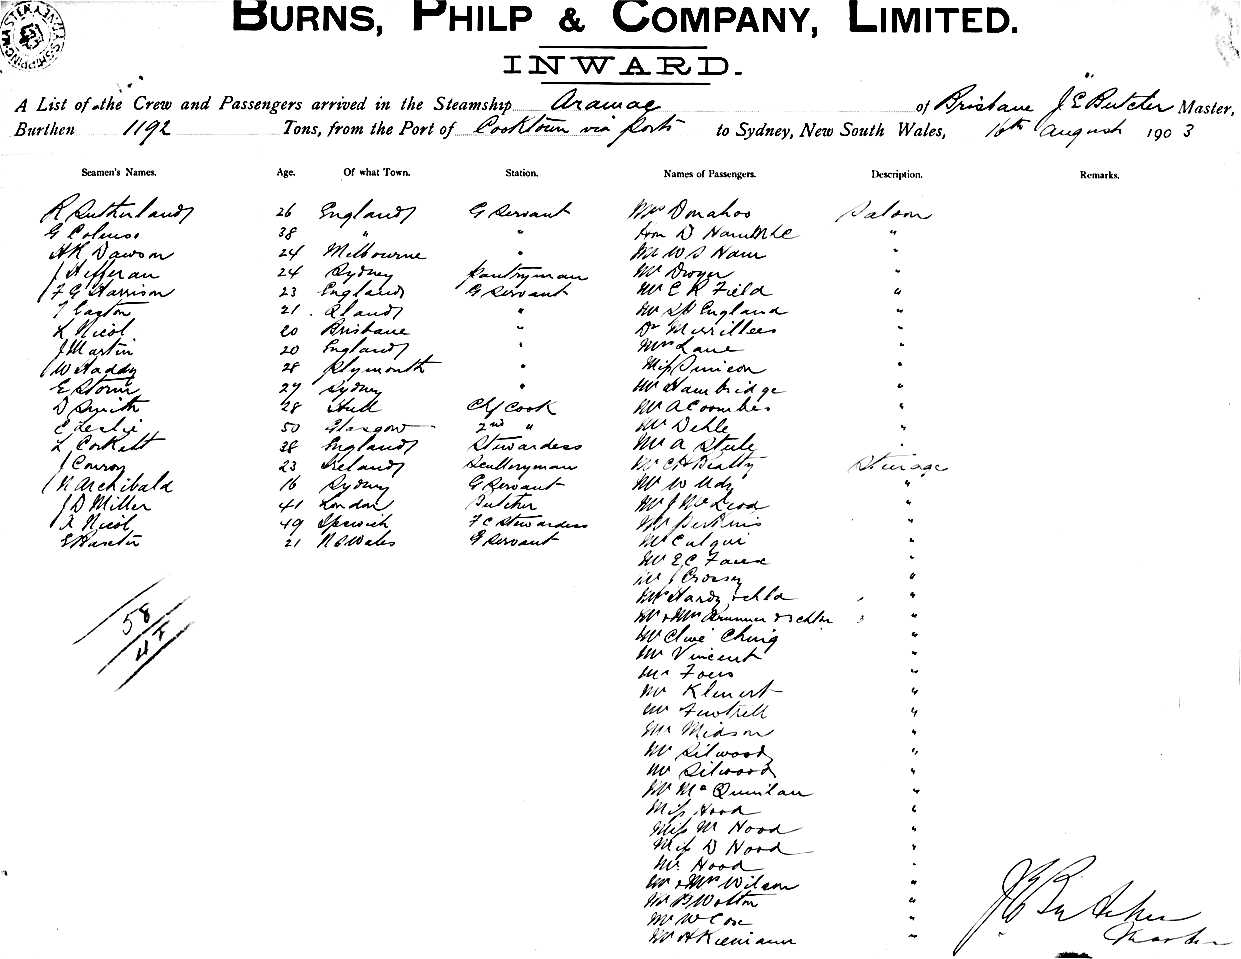 BURNS, PHILP & COMPANY, LIMITED.
INWARD.
A List of the Crew and Passengers arrived in the Steamship Aramac of Brisbane J E Butcher Master,
Burthen 1192 Tons, from the Port of Cooktown via ports to Sydney, New South Wales, 16th August 1903
Seamen's Names. Age. Of what Town. Station. Names of Passengers. Description. Remarks.
R Sutherland 26 England G Servant Mrs Donahoo Saloon
G 38 " " Hon D "
H K Dawson 24 Melbourne " Mr W S Ham "
J Heffernan 24 Sydney Pantryman Mr Dwyer "
F G Harrison 23 England G Servant Mr C R Field "
21 " England "
L Nicol 20 Brisbane " Dr Merrillees "
J Martin 20 England " Mrs Lane "
W Haddy 28 Plymouth " Miss "
E Storm 27 Sydney " Mr Hambridge "
D Smith 28 Hull Chf Cook Mr A Coombes "
E Leslie 50 Glasgow 2nd " Mr Dehle "
L Corkett 38 England Stewardess Mr A Steele "
J Conroy 23 Ireland Sculleryman Mr C H Beatty Steerage
R Archibald 16 Sydney G Servant Mr W "
J D Miller 41 London Butcher Mr J McLeod "
A Nicol 49 Ipswich F C Stewardess Mr Perkins "
E Baxter 21 N S Wales G Servant Mr "
Mr E C "
Mr J "
Mr Hardy & chld "
Mr & Mrs "
Mr Ching "
Mr Vincent "
Mr "
Mr "
Mr Fewtrell "
Mr Midson "
Mr Silwood "
Mr Silwood "
Mr McQuinlan "
Miss Hood "
Miss M Hood "
Miss D Hood "
Mr Hood "
Mr & Mrs Wilson "
Mr B Wotton "
Mr W Cox "
Mr A "
58
47
J E Butcher
Master